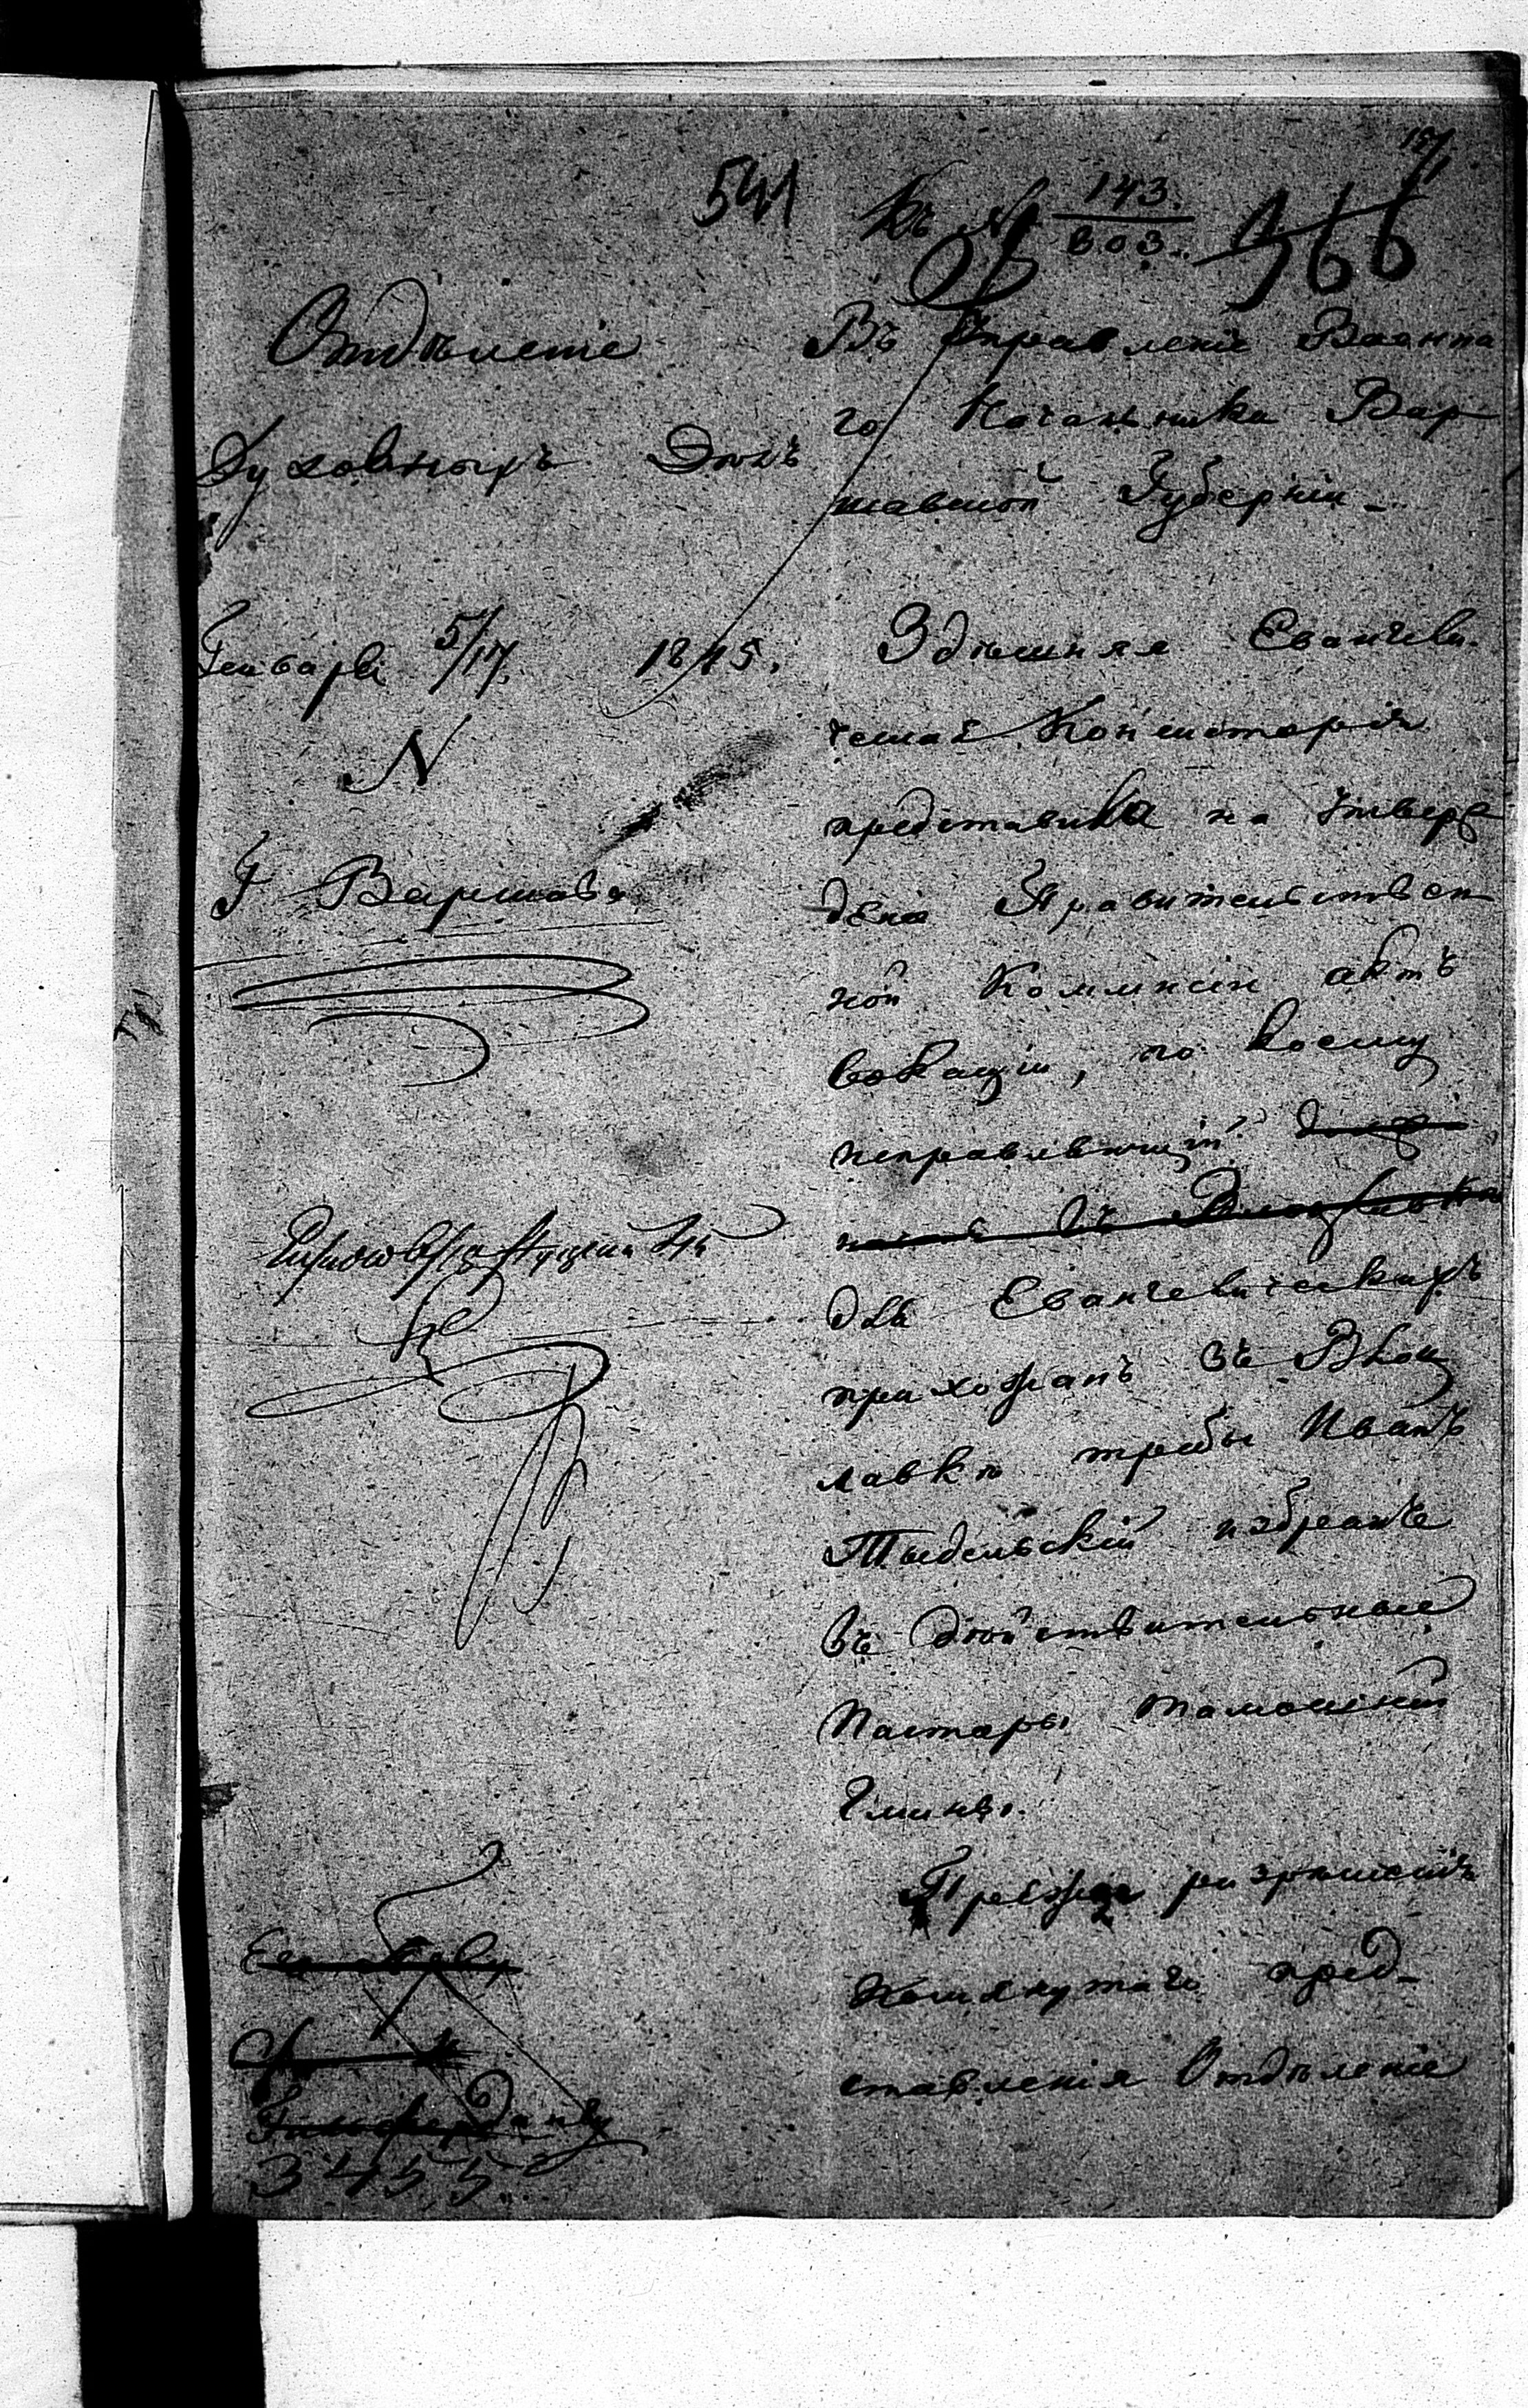 541
Къ № 143/803. 366
Отдѣленіе
Духовныхъ Дѣлъ
Генваря 5/17. 1845.
N
Г Варшава
Въ Управленіе Военна
го Начальника Вар
шавской Губерніи
Здѣшняя Евангели-
ческая Консисторія
представила на утверж
деніе Правительствен
ной Коммисіи актъ
вокаціи, по коему
исправляющій
для Евангелическихъ
прихожанъ въ Влоц
лавкѣ требы Иванъ
избранъ
въ дѣйствительные
Пасторы тамошней
Гмины.
Прежде разрѣшенія
помянутаго пред-
ставленія Отдѣленіе
3455